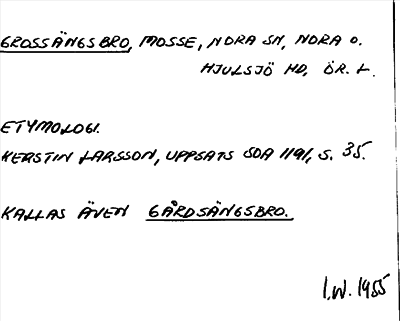 GROSSÄNGSBRO, MOSSE, NORA SN, NORA O.
HJULSJÖ HD, ÖR. L.
ETYMOLOGI.
KERSTIN LARSSON, UPPSATS SOA 1191, S. 35.
KALLAS ÄVEN GÅRDSÄNGSBRO.
I.W. 1955